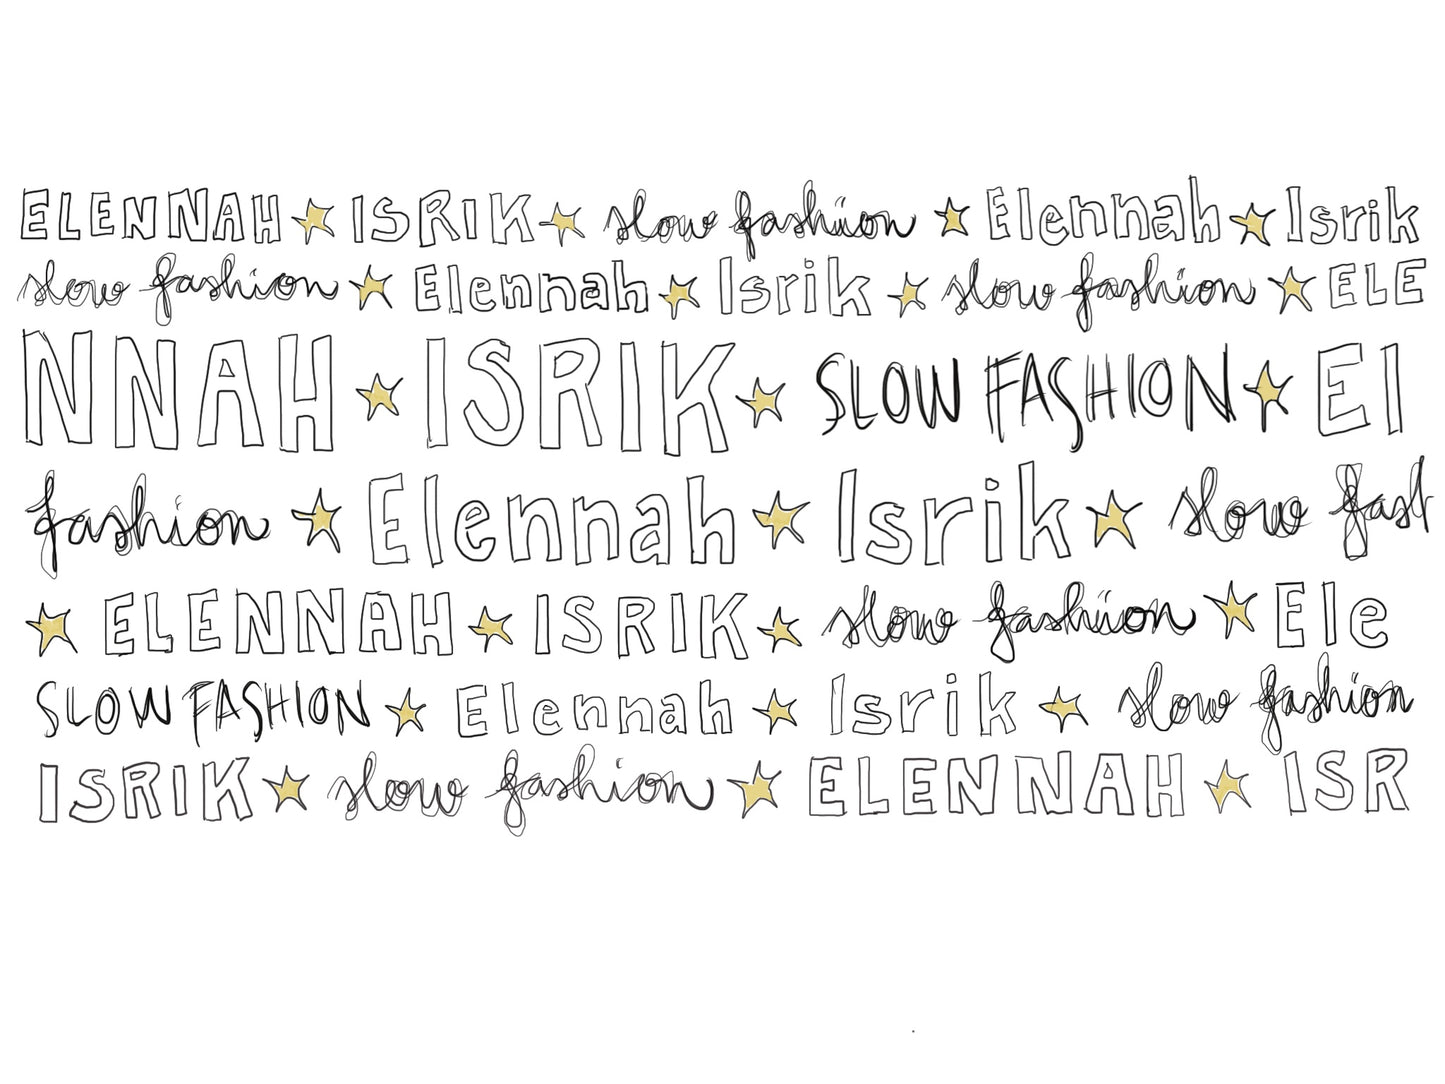 ELENNAH ★ ISRIK ★ slow fashion ★ Elennah ★ Isrik
slow fashion ★ Elennah ★ Isrik ★ slow fashion ★ ELE
NNAH ★ ISRIK ★ SLOW FASHION ★ El
fashion ★ Elennah ★ Isrik ★ slow fash
★ ELENNAH ★ ISRIK ★ slow fashion ★ Ele
SLOW FASHION ★ Elennah ★ Isrik ★ slow fashion
ISRIK ★ slow fashion ★ ELENNAH ★ ISR